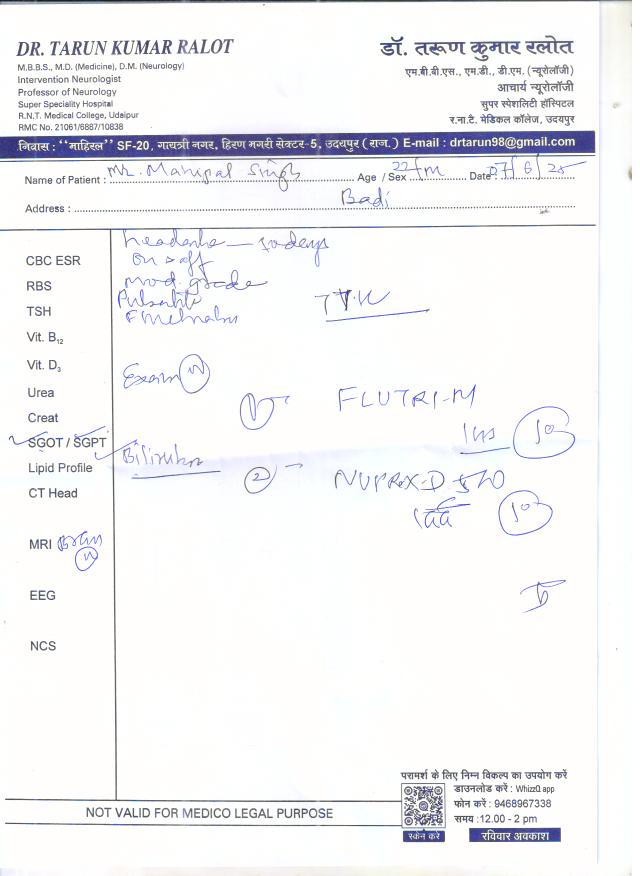 DR. TARUN KUMAR RALOT
M.B.B.S., M.D. (Medicine), D.M. (Neurology)
Intervention Neurologist
Professor of Neurology
Super Speciality Hospital
R.N.T. Medical College, Udaipur
RMC No. 21061/6887/10838
डॉ. तरूण कुमार रलोत
एम.बी.बी.एस., एम.डी., डी.एम. (न्यूरोलॉजी)
आचार्य न्यूरोलॉजी
सुपर स्पेशलिटी हॉस्पिटल
र.ना.टै. मेडिकल कॉलेज, उदयपुर
निवास : "माहिरल" SF-20, गायत्री नगर, हिरण मगरी सेक्टर-5, उदयपुर (राज.) E-mail : drtarun98@gmail.com
Name of Patient : Mr. Manipal Singh Age / Sex 22/m Date 07/6/25
Address : Badi
headache — 10 days
on & off
CBC ESR
mod. grade
RBS
Pulsatile
TSH
Vit. B12
Vit. D3
Exam N
Urea
1 FLUTRI-M
Creat
SGOT / SGPT
Bilirubin
Lipid Profile
2 NUPREX-D
CT Head
MRI Brain
N
EEG
NCS
परामर्श के लिए निम्न विकल्प का उपयोग करें
डाउनलोड करें : WhizzQ app
फोन करें : 9468967338
समय :12.00 - 2 pm
NOT VALID FOR MEDICO LEGAL PURPOSE
स्कैन करें
रविवार अवकाश